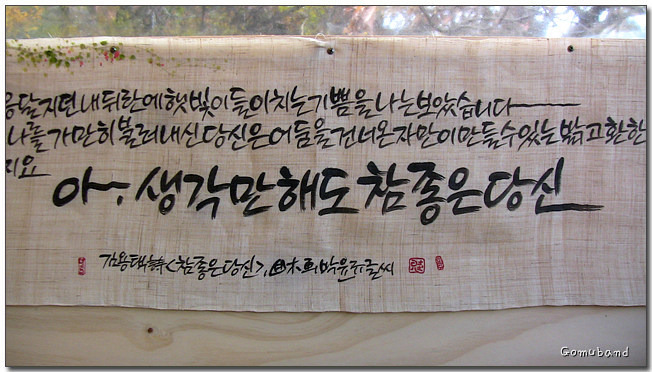 응달지던 내 뒤란에 햇빛이 들이치는 기쁨을 나는 보았습니다
나를 가만히 불러내신 당신은 어둠을 건너온 자만이 만들 수 있는 밝고 환한
지요
아~, 생각만 해도 참 좋은 당신
김용택 詩 <참 좋은 당신>, 박윤규 글씨
Gomuband